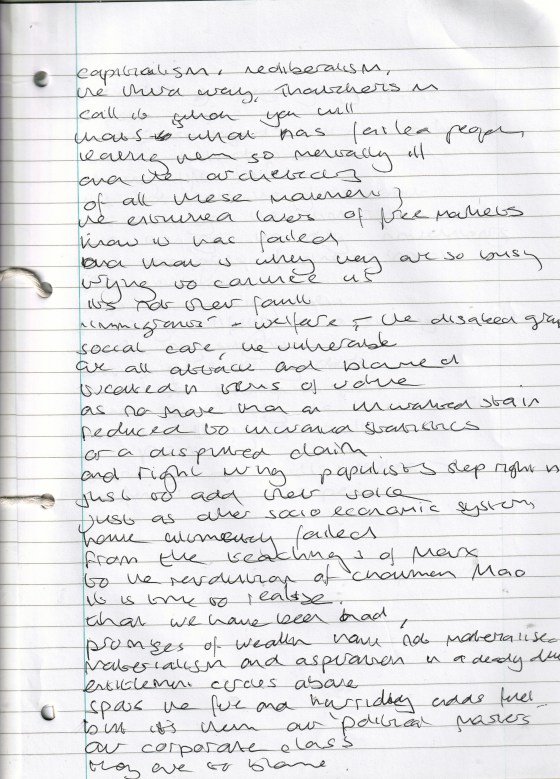 capitalism, neoliberalism,
the third way, Thatcherism
call it what you will
that is what has failed people
leaving them so mentally ill
and the architects
of all these movements
the entitled lovers of free markets
know it has failed
and that is why they are so busy
trying to convince us
it's not their fault
"immigrants" - welfare, - the disabled
social care, the vulnerable
are all attacked and blamed
treated in terms of value
as no more than an unwanted stain
reduced to unwanted statistics
or a disputed claim
and right wing populists step right in
just to add their voice
just as other socio economic systems
have ultimately failed
from the teachings of Marx
to the revolution of chairman Mao
it is time to realise.
that we have been had,
promises of wealth have not materialised
materialism and aspiration in a deadly
entitlement circles above
spots the fire and hurriedly adds fuel
but it's them our political masters
our corporate class
they are to blame.